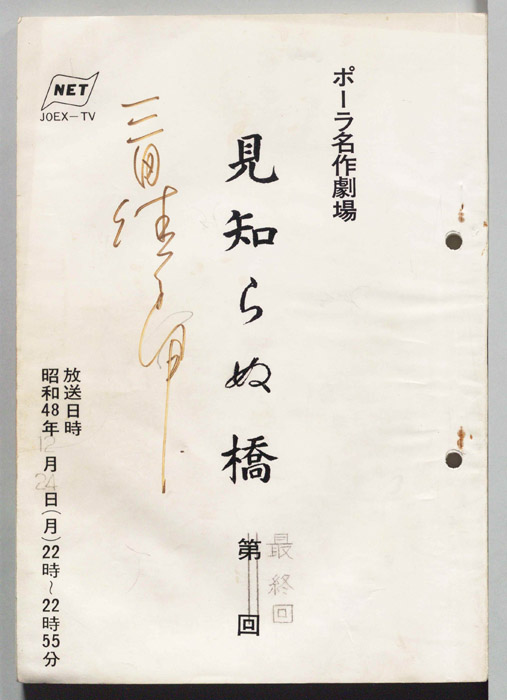 ポーラ名作劇場
見知らぬ橋
第 回
最終回
三田佳子
NET
JOEX-TV
放送日時
昭和48年12月24日(月)22時~22時55分